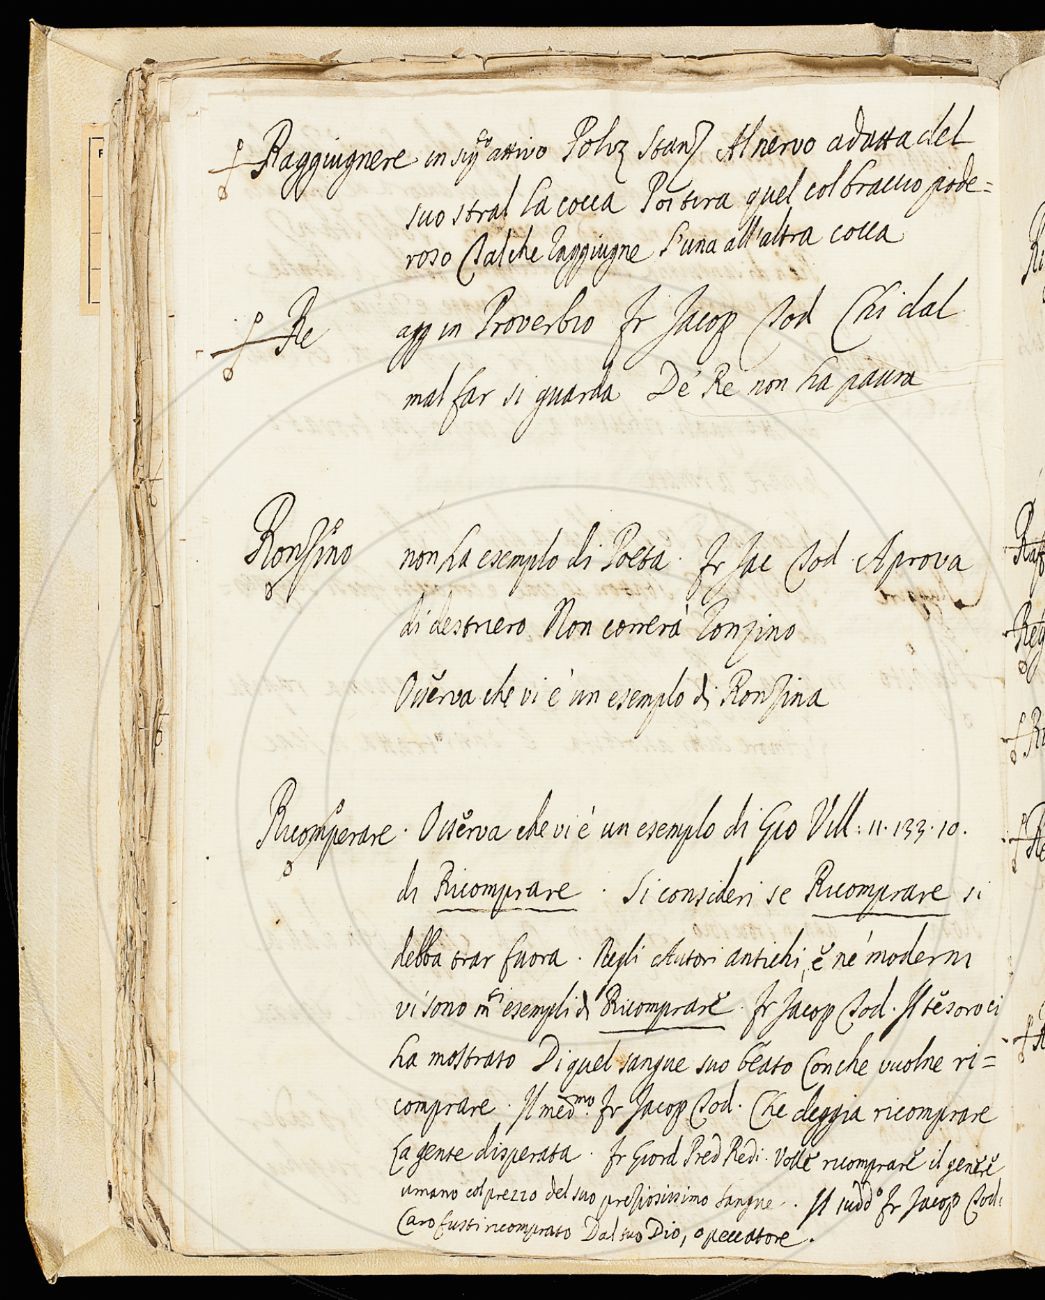 Raggiugnere in sigo attivo Poliz Stanz Al nervo adatta del
suo stral la cocca Poi tira quel col braccio pode=
roso Tal che raggiugne l'una all'altra cocca
Re agg in Proverbio Fr Jacop Tod Chi dal
mal far si guarda De' Re non ha paura
Ronzino non ha esempio di Poeta. Fr Jac Tod A prova
di destriero Non correrà ronzino
Osserva che vi è un esempio di Ronzina
Ricomperare. Osserva che vi è un esempio di Gio Vill: 11.133.10.
di Ricomprare. Si consideri se Ricomprare si
debba trar fuora. Negli Autori antichi, e ne' moderni
vi sono mti esempli di Ricomprare. Fr Jacop Tod. Il tesoro ci
ha mostrato Di quel sangue suo beato Con che vuolne ri=
comprare. Il medmo. Fr Jacop Tod. Che deggia ricomprare
La gente disperata. Fr Giord Pred Redi. Volle ricomprare il genere
umano col prezzo del suo preziosissimo sangue. Il suddo Fr Jacop Tod.
Caro fusti ricomprato Dal tuo Dio, o peccatore.